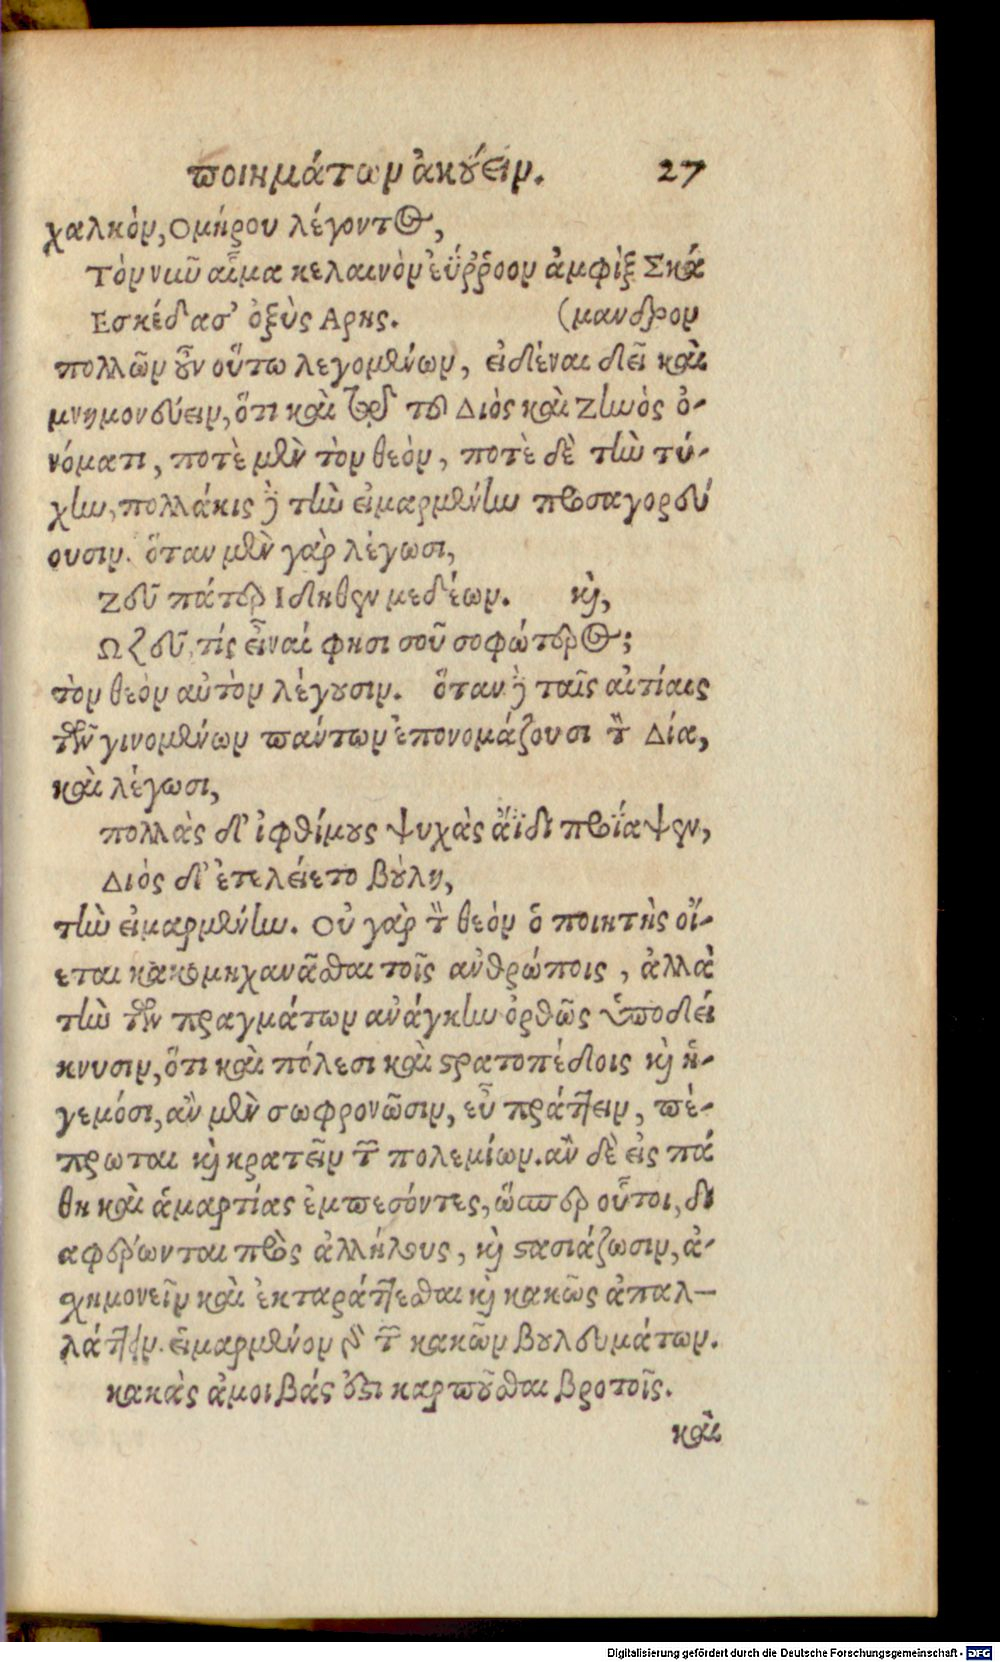 ποιημάτων ἀκούειν. 27
χαλκὸν, Ομήρου λέγοντος,
Τὸν νῦν αἷμα κελαινὸν ἐΰῤῥοον ἀμφὶξ Σκά
Εσκέδασ' ὀξὺς Αρης. (μανδρον
πολλῶν οὖν οὕτω λεγομένων, εἰδέναι δεῖ καὶ
μνημονεύειν, ὅτι καὶ τῷ τοῦ Διὸς καὶ Ζηνὸς ὀ-
νόματι, ποτὲ μὲν τὸν θεὸν, ποτὲ δὲ τὴν τύ-
χην, πολλάκις δὲ τὴν εἱμαρμένην προσαγορεύ
ουσιν. ὅταν μὲν γὰρ λέγωσι,
Ζεῦ πάτερ Ιδηθεν μεδέων. καὶ,
Ω ζεῦ, τίς εἶναί φησι σοῦ σοφώτερος;
τὸν θεὸν αὐτὸν λέγουσιν. ὅταν δὲ ταῖς αἰτίαις
τῶν γινομένων πάντων ἐπονομάζουσι τὸν Δία,
καὶ λέγωσι,
πολλὰς δ' ἰφθίμους ψυχὰς ἄϊδι προΐαψεν,
Διὸς δ' ἐτελείετο βουλὴ,
τὴν εἱμαρμένην. Οὐ γὰρ τὸν θεὸν ὁ ποιητὴς οἴ-
εται κακομηχανᾶσθαι τοῖς ἀνθρώποις, ἀλλὰ
τὴν τῶν πραγμάτων ἀνάγκην ὀρθῶς ὑποδεί
κνυσιν, ὅτι καὶ πόλεσι καὶ στρατοπέδοις καὶ ἡ-
γεμόσι, ἂν μὲν σωφρονῶσιν, εὖ πράττειν, πέ-
πρωται καὶ κρατεῖν τῶν πολεμίων. ἂν δὲ εἰς πά
θη καὶ ἁμαρτίας ἐμπεσόντες, ὥσπερ οὗτοι, δι
αφέρωνται πρὸς ἀλλήλους, καὶ στασιάζωσιν, ἀ-
σχημονεῖν καὶ ἐκταράττεσθαι καὶ κακῶς ἀπαλ-
λάττειν. εἱμαρμένον γὰρ τῶν κακῶν βουλευμάτων.
κακὰς ἀμοιβάς ἐστι καρποῦσθαι βροτοῖς.
καὶ
Digitalisierung gefördert durch die Deutsche Forschungsgemeinschaft - DFG